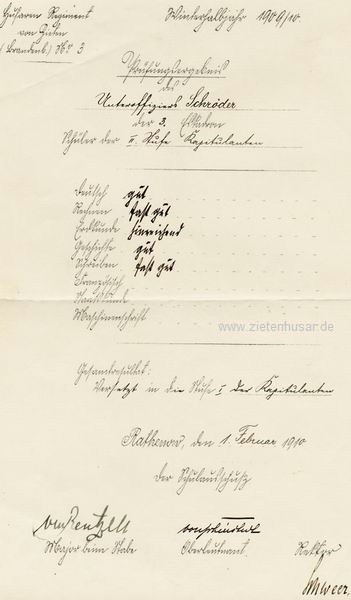 Husaren Regiment
von Zieten
(Brandenb.) No. 3
Winterhalbjahr 1909/10.
Prüfungsergebnis
des
Unteroffiziers Schröder
der 3. Eskadron
Schüler der II. Stufe Kapitulanten
Deutsch gut
Rechnen fast gut
Erdkunde hinreichend
Geschichte gut
Schreiben fast gut
Französisch
Maschinenschrift
www.zietenhusar.de
Gesamtresultat:
Versetzt in die Stufe I der Kapitulanten
Rathenow, den 1. Februar 1910
Der Schulausschuß
Major beim Stabe
Oberleutnant
Rektor